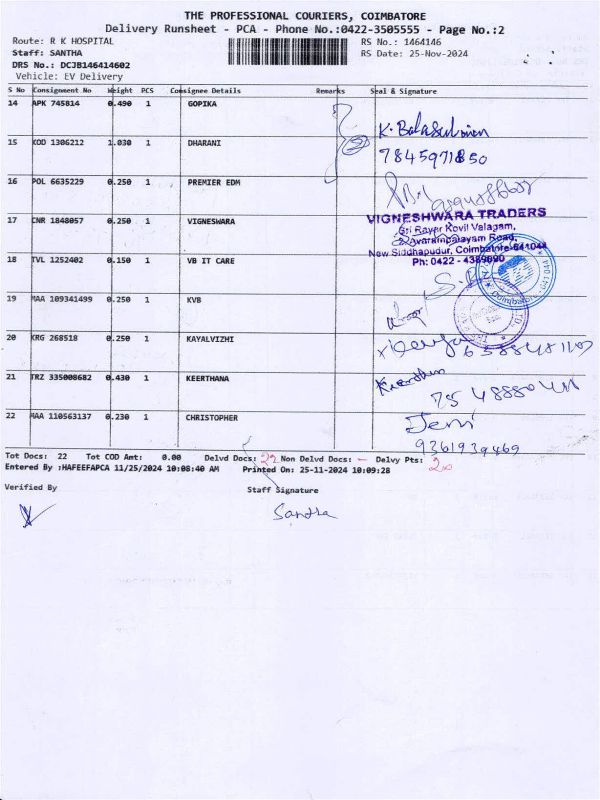 THE PROFESSIONAL COURIERS, COIMBATORE
Delivery Runsheet - PCA - Phone No.:0422-3505555 - Page No.:2
Route: R K HOSPITAL RS No.: 1464146
Staff: SANTHA RS Date: 25-Nov-2024
DRS No.: DCJB146414602
Vehicle: EV Delivery
S No Consignment No Weight PCS Consignee Details Remarks Seal & Signature
14 APK 745814 0.490 1 GOPIKA
K. Balasubmien
7845971850
15 KOD 1306212 1.030 1 DHARANI
16 POL 6635229 0.250 1 PREMIER EDM
17 CNR 1848057 0.250 1 VIGNESWARA
VIGNESHWARA TRADERS
Sri Rayar Kovil Valagam,
Avarampalayam Road,
New Siddhapudur, Coimbatore-641044
Ph: 0422 - 4389090
18 TVL 1252402 0.150 1 VB IT CARE
Coimbatore
19 MAA 109341499 0.250 1 KVB
20 KRG 268518 0.250 1 KAYALVIZHI
21 TRZ 335008682 0.430 1 KEERTHANA
Keerthana
22 MAA 110563137 0.230 1 CHRISTOPHER
Jeni
9361939469
Tot Docs: 22 Tot COD Amt: 0.00 Delvd Docs: 22 Non Delvd Docs: - Delvy Pts: 20
Entered By :HAFEEFAPCA 11/25/2024 10:08:40 AM Printed On: 25-11-2024 10:09:28
Verified By Staff Signature
Santha